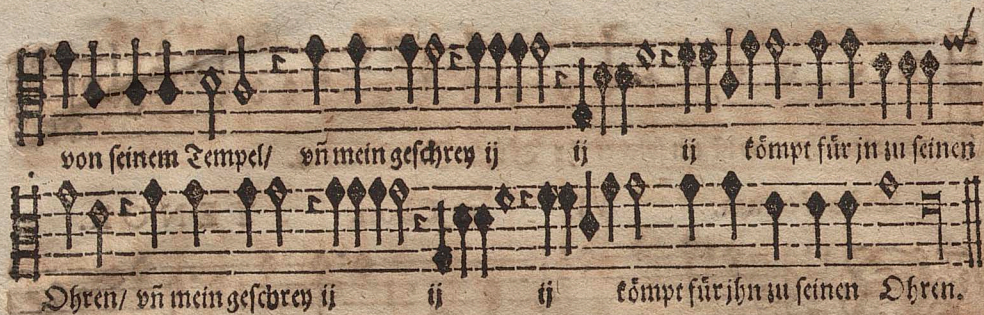 von seinem Tempel/ vñ mein geschrey ij ij ij kömpt für jn zu seinen
Ohren/ vñ mein geschrey ij ij ij kömpt für jhn zu seinen Ohren.